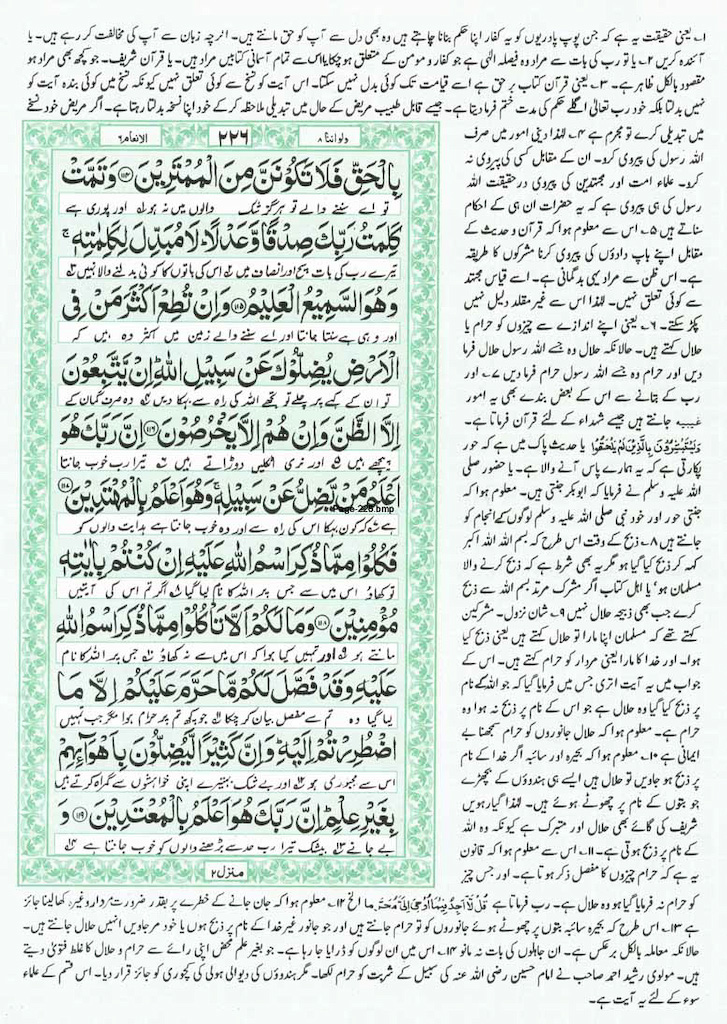 ۱۔ یعنی حقیقت یہ ہے کہ جن پوپ پادریوں کو یہ کفار اپنا حکم بنانا چاہتے ہیں وہ بھی دل سے آپ کو حق مانتے ہیں۔ اگرچہ زبان سے آپ کی مخالفت کر رہے ہیں۔ یا
آئندہ کریں ۲۔ یا تو رب کی بات سے مراد وہ فیصلہ الٰہی ہے جو کفار و مومن کے متعلق ہو چکا یا اس سے تمام آسمانی کتابیں مراد ہیں۔ یا قرآن شریف۔ جو کچھ بھی مراد ہو
مقصود بالکل ظاہر ہے۔ ۳۔ یعنی قرآن کتاب برحق ہے اسے قیامت تک کوئی بدل نہیں سکتا۔ اس آیت کو نسخ سے کوئی تعلق نہیں کیونکہ نسخ میں کوئی بندہ آیت کو
نہیں بدلتا بلکہ خود رب تعالٰی اگلے حکم کی مدت ختم فرما دیتا ہے۔ جیسے قابل طبیب مریض کے حال میں تبدیلی ملاحظہ کر کے خود اپنا نسخہ بدلتا رہتا ہے۔ اگر مریض خود نسخے
میں تبدیلی کرے تو مجرم ہے ۴۔ لہٰذا دینی امور میں صرف
اللہ رسول کی پیروی کرو۔ ان کے مقابل کسی کی پیروی نہ
کرو۔ علماء امت اور مجتہدین کی پیروی درحقیقت اللہ
رسول کی ہی پیروی ہے کہ یہ حضرات ان ہی کے احکام
سناتے ہیں ۵۔ اس سے معلوم ہوا کہ قرآن و حدیث کے
مقابل اپنے باپ دادوں کی پیروی کرنا مشرکوں کا طریقہ
ہے۔ اس ظن سے مراد یہی بدگمانی ہے۔ اسے قیاس مجتہد
سے کوئی تعلق نہیں۔ لہٰذا اس سے غیر مقلد دلیل نہیں
پکڑ سکتے۔ ۶۔ یعنی اپنے اندازے سے چیزوں کو حرام یا
حلال کہتے ہیں۔ حالانکہ حلال وہ جسے اللہ رسول حلال فرما
دیں اور حرام وہ جسے اللہ رسول حرام فرما دیں ۷۔ اور
رب کے بتانے سے اس کے بعض بندے بھی یہ امور
غیبیہ جانتے ہیں جیسے شہداء کے لئے قرآن فرماتا ہے۔
وَیَسْتَبْشِرُوْنَ بِالَّذِیْنَ لَمْ یَلْحَقُوْا یا حدیث پاک میں ہے کہ حور
پکارتی ہے کہ یہ ہمارے پاس آنے والا ہے۔ یا حضور صلی
اللہ علیہ وسلم نے فرمایا کہ ابوبکر جنتی ہیں۔ معلوم ہوا کہ
جنتی حور اور خود نبی صلی اللہ علیہ وسلم لوگوں کے انجام کو
جانتے ہیں ۸۔ ذبح کے وقت اس طرح کہ بسم اللہ اللہ اکبر
کہہ کر ذبح کیا گیا ہو مگر یہ بھی شرط ہے کہ ذبح کرنے والا
مسلمان ہو یا اہل کتاب اگر مشرک مرتد بسم اللہ سے ذبح
کرے جب بھی ذبیحہ حلال نہیں ۹۔ شان نزول۔ مشرکین
کہتے تھے کہ مسلمان اپنا مارا تو حلال کہتے ہیں یعنی ذبح کیا
ہوا۔ اور خدا کا مارا یعنی مردار کو حرام کہتے ہیں۔ اس کے
جواب میں یہ آیت اتری جس میں فرمایا گیا کہ جو اللہ کے نام
پر ذبح کیا گیا وہ حلال ہے جو اس کے نام پر ذبح نہ ہوا وہ
حرام ہے۔ معلوم ہوا کہ حلال جانوروں کو حرام سمجھنا بے
ایمانی ہے ۱۰۔ معلوم ہوا کہ بحیرہ اور سائبہ اگر خدا کے نام
پر ذبح ہو جاویں تو حلال ہیں ایسے ہی ہندوؤں کے بچھڑے
جو بتوں کے نام پر چھوٹے ہوئے ہیں۔ لہٰذا گیارہویں
شریف کی گائے بھی حلال اور متبرک ہے کیونکہ وہ اللہ
کے نام پر ذبح ہوتی ہے۔ ۱۱۔ اس سے معلوم ہوا کہ قانون
یہ ہے کہ حرام چیزوں کا مفصل ذکر ہوتا ہے۔ اور جس چیز
دلواننا ۸
۲۲۶
الانعام ۶
بِالْحَقِّ فَلَا تَكُوْنَنَّ مِنَ الْمُمْتَرِيْنَ ﴿۱۱۴﴾ وَتَمَّتْ
تو اے سننے والے تو ہرگز شک والوں میں نہ ہو ۱ اور پوری ہے
كَلِمَتُ رَبِّكَ صِدْقًا وَّعَدْلًا ؕ لَا مُبَدِّلَ لِكَلِمٰتِهٖ ۚ
تیرے رب کی بات سچ اور انصاف میں ۲ اس کی باتوں کا کوئی بدلنے والا نہیں ۳
وَهُوَ السَّمِيْعُ الْعَلِيْمُ ﴿۱۱۵﴾ وَاِنْ تُطِعْ اَكْثَرَ مَنْ فِى
اور وہی ہے سنتا جانتا اور اے سننے والے زمین میں اکثر وہ ہیں کہ
الْاَرْضِ يُضِلُّوْكَ عَنْ سَبِيْلِ اللّٰهِ ؕ اِنْ يَّتَّبِعُوْنَ
تو ان کے کہے پر چلے تو تجھے اللہ کی راہ سے بہکا دیں ۴ وہ صرف گمان کے
اِلَّا الظَّنَّ وَاِنْ هُمْ اِلَّا يَخْرُصُوْنَ ﴿۱۱۶﴾ اِنَّ رَبَّكَ هُوَ
پیچھے ہیں ۵ اور نری اٹکلیں دوڑاتے ہیں ۶ تیرا رب خوب جانتا
اَعْلَمُ مَنْ يَّضِلُّ عَنْ سَبِيْلِهٖ ۚ وَهُوَ اَعْلَمُ بِالْمُهْتَدِيْنَ ﴿۱۱۷﴾
Page-226.bmp
ہے کہ کون بہکا اس کی راہ سے اور وہ خوب جانتا ہے ہدایت والوں کو
فَكُلُوْا مِمَّا ذُكِرَ اسْمُ اللّٰهِ عَلَيْهِ اِنْ كُنْتُمْ بِاٰيٰتِهٖ
تو کھاؤ اس میں سے جس پر اللہ کا نام لیا گیا ۸ اگر تم اس کی آیتیں
مُؤْمِنِيْنَ ﴿۱۱۸﴾ وَمَا لَكُمْ اَلَّا تَاْكُلُوْا مِمَّا ذُكِرَ اسْمُ اللّٰهِ
مانتے ہو ۹ اور تمہیں کیا ہوا کہ اس میں سے نہ کھاؤ ۱۰ جس پر اللہ کا نام
عَلَيْهِ وَقَدْ فَصَّلَ لَكُمْ مَّا حَرَّمَ عَلَيْكُمْ اِلَّا مَا
لیا گیا وہ تم سے مفصل بیان کر چکا ۱۱ جو کچھ تم پر حرام ہوا مگر جب تمہیں
اضْطُرِرْتُمْ اِلَيْهِ ؕ وَاِنَّ كَثِيْرًا لَّيُضِلُّوْنَ بِاَهْوَآئِهِمْ
اس سے مجبوری ہو ۱۲ اور بے شک بہتیرے اپنی خواہشوں سے گمراہ کرتے ہیں
بِغَيْرِ عِلْمٍ ؕ اِنَّ رَبَّكَ هُوَ اَعْلَمُ بِالْمُعْتَدِيْنَ ﴿۱۱۹﴾ وَ
بے جانے ۱۳ بیشک تیرا رب حد سے بڑھنے والوں کو خوب جانتا ہے ۱۴
منزل ۲
کو حرام نہ فرمایا گیا ہو وہ حلال ہے۔ رب فرماتا ہے قُلْ لَّا اَجِدُ فِیْمَا اُوْحِیَ اِلَیَّ مُحَرَّمًا الخ ۱۲۔ معلوم ہوا کہ جان جانے کے خطرے پر بقدر ضرورت مردار وغیرہ کھا لینا جائز
ہے ۱۳۔ اس طرح کہ بحیرہ سائبہ بتوں پر چھوٹے ہوئے جانوروں کو تو حرام جانتے ہیں اور جو جانور غیر خدا کے نام پر ذبح ہوں یا خود مر جاویں انہیں حلال جانتے ہیں۔
حالانکہ معاملہ بالکل برعکس ہے۔ ان جاہلوں کی بات نہ مانو ۱۴۔ اس میں ان لوگوں کو ڈرایا جا رہا ہے۔ جو بغیر علم محض اپنی رائے سے حرام و حلال کا غلط فتویٰ دیتے
ہیں۔ مولوی رشید احمد صاحب نے امام حسین رضی اللہ عنہ کی سبیل کے شربت کو حرام لکھا۔ مگر ہندوؤں کی دیوالی ہولی کی کچوری کو جائز قرار دیا۔ اس قسم کے علماء
سوء کے لئے یہ آیت ہے۔